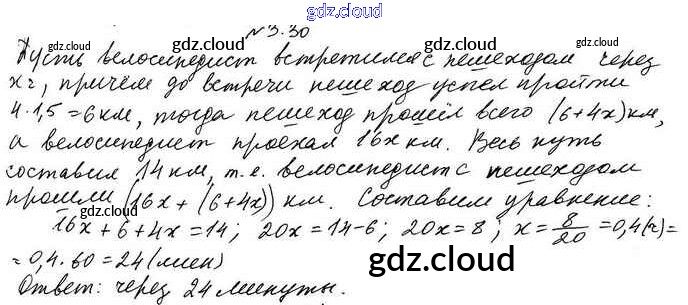 gdz.cloud
№3.30
gdz.cloud gdz.cloud
Пусть велосипедист встретился с пешеходом через
х ч, причём до встречи пешеход успел пройти
4·1,5=6 км, тогда пешеход прошёл всего (6+4х) км,
а велосипедист проехал 16х км. Весь путь
составил 14 км, т.е. велосипедист с пешеходом
прошли (16х + (6+4х)) км. Составим уравнение:
gdz.cloud
16х+6+4х=14; 20х=14-6; 20х=8; х=8/20=0,4(ч)=
=0,4·60=24(мин)
gdz.cloud
Ответ: через 24 минуты.